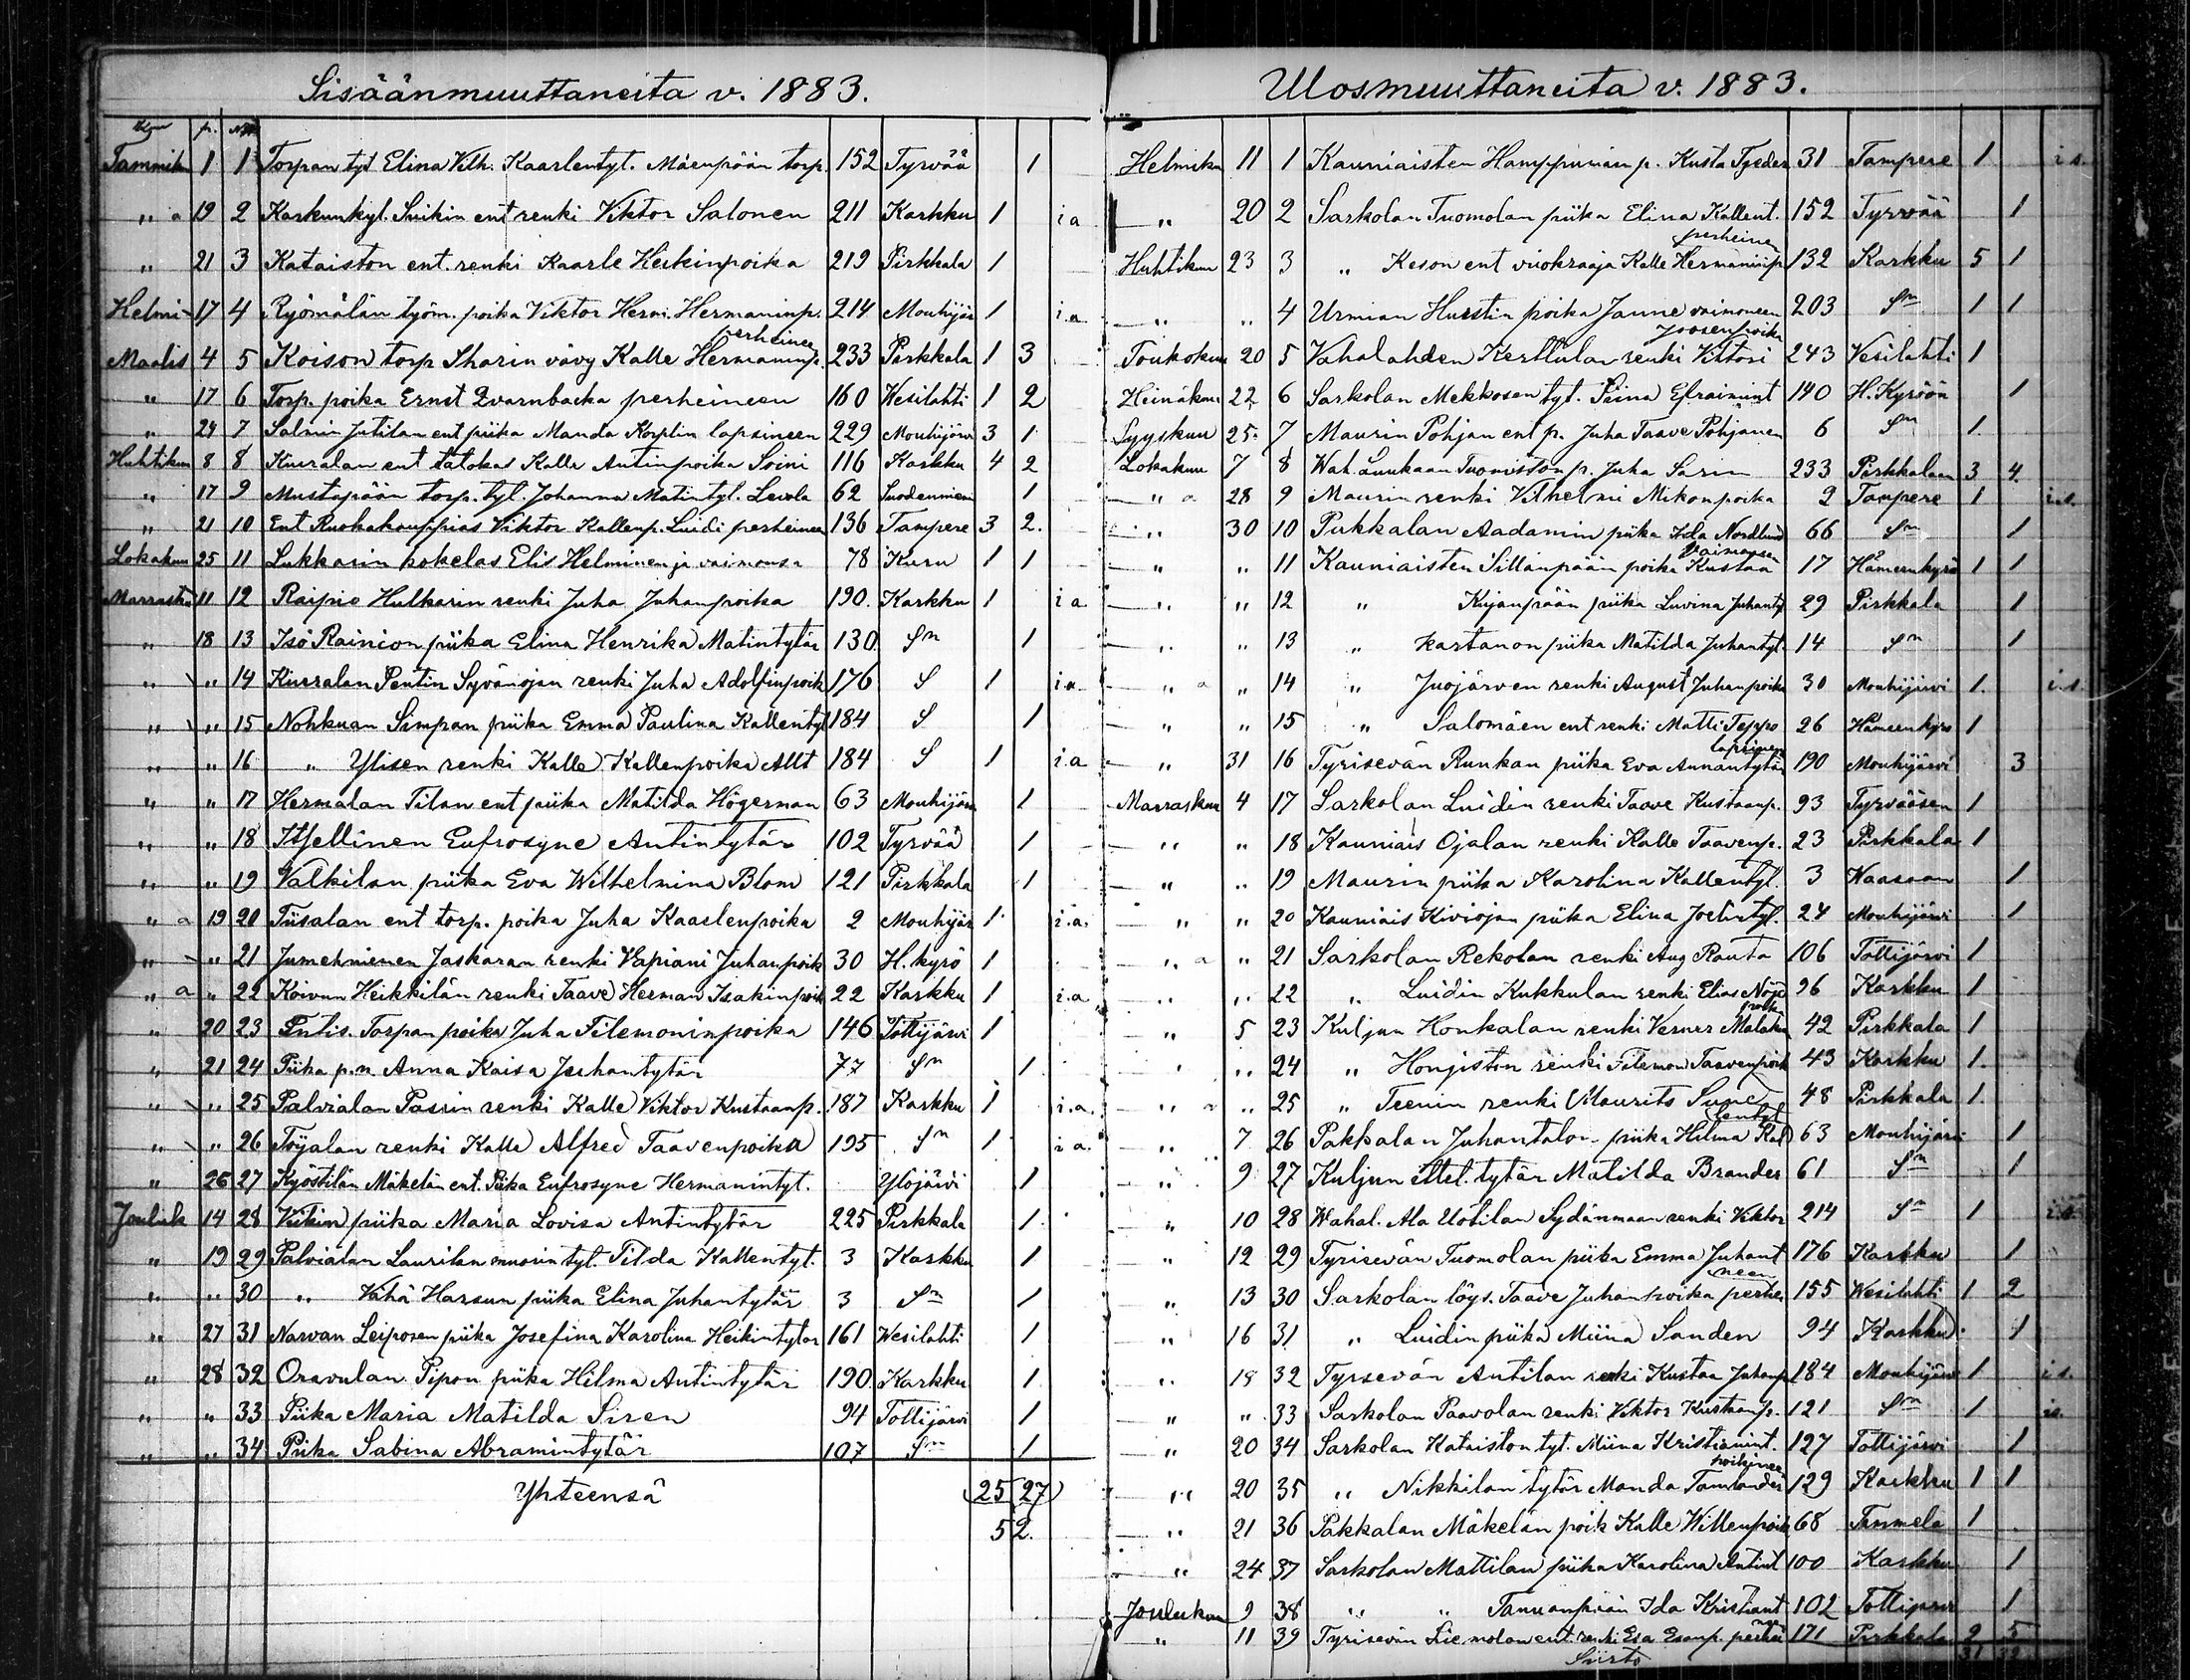 Sisäänmuuttaneita v. 1883.
Tammik 1 1 Torpan tyt Elina Vilh. Kaarlentyt. Mäenpään torp. 152 Tyrvää 1
" a 19 2 Karkunkyl. Suikin ent renki Viktor Salonen 211 Karkku 1 i a
" 21 3 Kataiston ent. renki Kaarle Heikinpoika 219 Pirkkala 1
Helmi 17 4 Ryömälän työm. poika Viktor Herm. Hermaninp. 214 Mouhijär 1 i.a.
perheinee
Maalis 4 5 Koison torp Sharin vävy Kalle Hermaninp. 233 Pirkkala 1 3
" 17 6 Torp. poika Ernst Qvarnbacka perheineen 160 Wesilahti 1 2
" 24 7 Salmin Jutilan ent piika Manda Korplin lapsineen 229 Mouhijärvi 3 1
Huhtikuu 8 8 Kuralan ent talokas Kalle Antinpoika Soini 116 Karkku 4 2
" 17 9 Mustapään torp. tyt. Johanna Matintyt. Levola 62 Suodennien 1
" 21 10 Ent Ruokakauppias Viktor Kallenp. Luidi perheineen 136 Tampere 3 2.
Lokakuu 25 11 Lukkarin kokelas Elis Helminen ja vaimonsa 78 Kuru 1 1
Marrasku 11 12 Raipio Hulkarin renki Juha Juhanpoika 190. Karkku 1 i a.
" 18 13 Iso Rainion piika Elina Henrika Matintytär 130. Sn 1
" " 14 Kuralan Pentin Syvänojan renki Juha Adolfinpoik 176 S 1 i a
" " 15 Nohkuan Simpan piika Emma Paulina Kallentyt 184 S 1
" " 16 " Ylisen renki Kalle Kallenpoika Allt 184 S 1 i.a
" " 17 Hermalan Tilan ent piika Matilda Högerman 63 Mouhijärv 1
" " 18 Itsellinen Eufrosyne Antintytär 102 Tyrvää 1
" " 19 Valkilan piika Eva Wilhelmina Blom 121 Pirkkala 1
" a 19 20 Tiisalan ent torp. poika Juha Kaarlenpoika 2 Mouhijär 1 i.a.
" " 21 Jumehnienen Jaskaran renki Vapiani Juhanpoik 30 H. kyrö 1
" a " 22 Koivun Heikkilän renki Taave Herman Isakinpoik 22 Karkku 1 i.a
" 20 23 Entis. Torpan poika Juha Filemoninpoika 146 Tottijärvi 1
" 21 24 Piika p.n. Anna Kaisa Juhantytär 77 Sn 1
" " 25 Palvialan Passin renki Kalle Viktor Kustaanp. 187 Karkku 1 i.a.
" " 26 Töyalan renki Kalle Alfred Taavenpoika 195 Sn 1 i a.
" 26 27 Kyöstilän Mäkelän ent. Piika Eufrosyne Hermanintyt. Ylöjärvi 1
Jouluk 14 28 Viikin piika Maria Lovisa Antintytär 225 Pirkkala 1
" 19 29 Palvialan Laurilan muorin tyt. Tilda Kallentyt. 3 Karkku 1
" " 30 " Vähä Harsun piika Elina Juhantytär 3 Sn 1
" 27 31 Narvan Leiposen piika Josefina Karolina Heikintytär 161 Wesilahti 1
" 28 32 Oravulan Pipon piika Hilma Antintytär 190. Karkku 1
" " 33 Piika Maria Matilda Siren 94 Tottijärvi 1
" " 34 Piika Sabina Abramintytär 107 Sn 1
Yhteensä 25 27
52.
Ulosmuuttaneita v. 1883.
Helmiku 11 1 Kauniaisten p. Kusta 31 Tampere 1 i.s.
" 20 2 Sarkolan Tuomolan piika Elina Kallent. 152 Tyrvää 1
perheinen
Huhtikuu 23 3 " Keson ent vuokraaja Kalle Hermaninp 132 Karkku 5 1
" " 4 Urmian Hurstin poika Janne vaimoneen 203 Sn 1 1
Joosenpoika
Toukokuu 20 5 Vahalahden Kerttulan renki Viktori 243 Vesilahti 1
Heinäkuu 22 6 Sarkolan Mekkosen tyt. Siina Efraimint 140 H. Kyröön 1
Syyskuu 25 7 Maurin Pohjan ent p. Juha Taave Pohjanen 6 Sn 1.
Lokakuu 7 8 Wah. Luukaan Tuomiston p. Juha Sarin 233 Pirkkalaan 3 4.
" a 28 9 Maurin renki Vilhelmi Mikonpoika 2 Tampere 1 i.s.
" 30 10 Pukkalan Aadamin piika Ida Nordlund 66 Sn 1
vaimonsa
" " 11 Kauniaisten Sillanpään poika Kustaa 17 Hämeenkyrö 1 1
" " 12 " Kujanpään piika Luvina Juhantyt 29 Pirkkala 1
" 13 " Kartanon piika Matilda Juhantyt. 14 Sn 1
" a " 14 " Juojärven renki August Juhanpoika 30 Mouhijärvi 1. i.s.
" " 15 " Salomäen ent renki Matti Teppo 26 Hämeenkyrö 1
lapsineen
" 31 16 Tyrisevän Runkan piika Eva Annantytär 190 Mouhijärvi 3
Marraskuu 4 17 Sarkolan Luidin renki Taave Kustaanp. 93 Tyrvääsen 1
" " 18 Kauniais Ojalan renki Kalle Taavenp. 23 Pirkkala 1
" " 19 Maurin piika Karolina Kallentyt. 3 Waasaan 1
" " 20 Kauniais Kiviojan piika Elina Joelintyt. 24 Mouhijärvi 1
" a " 21 Sarkolan Rekolan renki Aug Rauta 106 Tottijärvi 1
" " 22 " Luidin Kukkulan renki Elias Nöjd 96 Karkku 1
poik
" 5 23 Kuljun Honkalan renki Verner Malakia 42 Pirkkala 1
" " 24 " Hongiston renki Filemon Taavenpoik 43 Karkku 1.
" a " 25 " Teenin renki Maurits Sune 48 Pirkkala 1.
lentyt
" 7 26 Pakkalan Juhantalon piika Hilma Kal 63 Mouhijärvi 1
" 9 27 Kuljun ittel. tytär Matilda Brander 61 Sn 1
" 10 28 Wahal. Ala Uotilan Sydänmaan renki Viktor 214 Sn 1 i.s.
" 12 29 Tyrisevän Tuomolan piika Emma Juhant 176 Karkku 1
neen
" 13 30 Sarkolan löys. Taave Juhanpoika perhei 155 Wesilahti 1 2
" 16 31 " Luidin piika Miina Sanden 94 Karkku 1
" 18 32 Tyrsevän Antilan renki Kustaa Juhanp 184 Mouhijärvi 1 i.s.
" " 33 Sarkolan Paavolan renki Viktor Kustaanp. 121 Sn 1 is.
" 20 34 Sarkolan Kataiston tyt. Miina Kristianint. 127 Tottijärvi 1
poikinee
" 20 35 " Nikkilan tytär Manda Tamlander 129 Karkku 1 1
" 21 36 Pakkalan Mäkelän poik Kalle Willenpoik 68 Tammela 1
" 24 37 Sarkolan Mattilan piika Karolina Antint 100 Karkku 1
Joulukuu 9 38 " " Tanuanpään Ida Kristiant 102 Tottijärvi 1
" 11 39 Tyrisevän ent. renki Esa Esanp. perhei 171 Pirkkala 2 5
Siirto 31